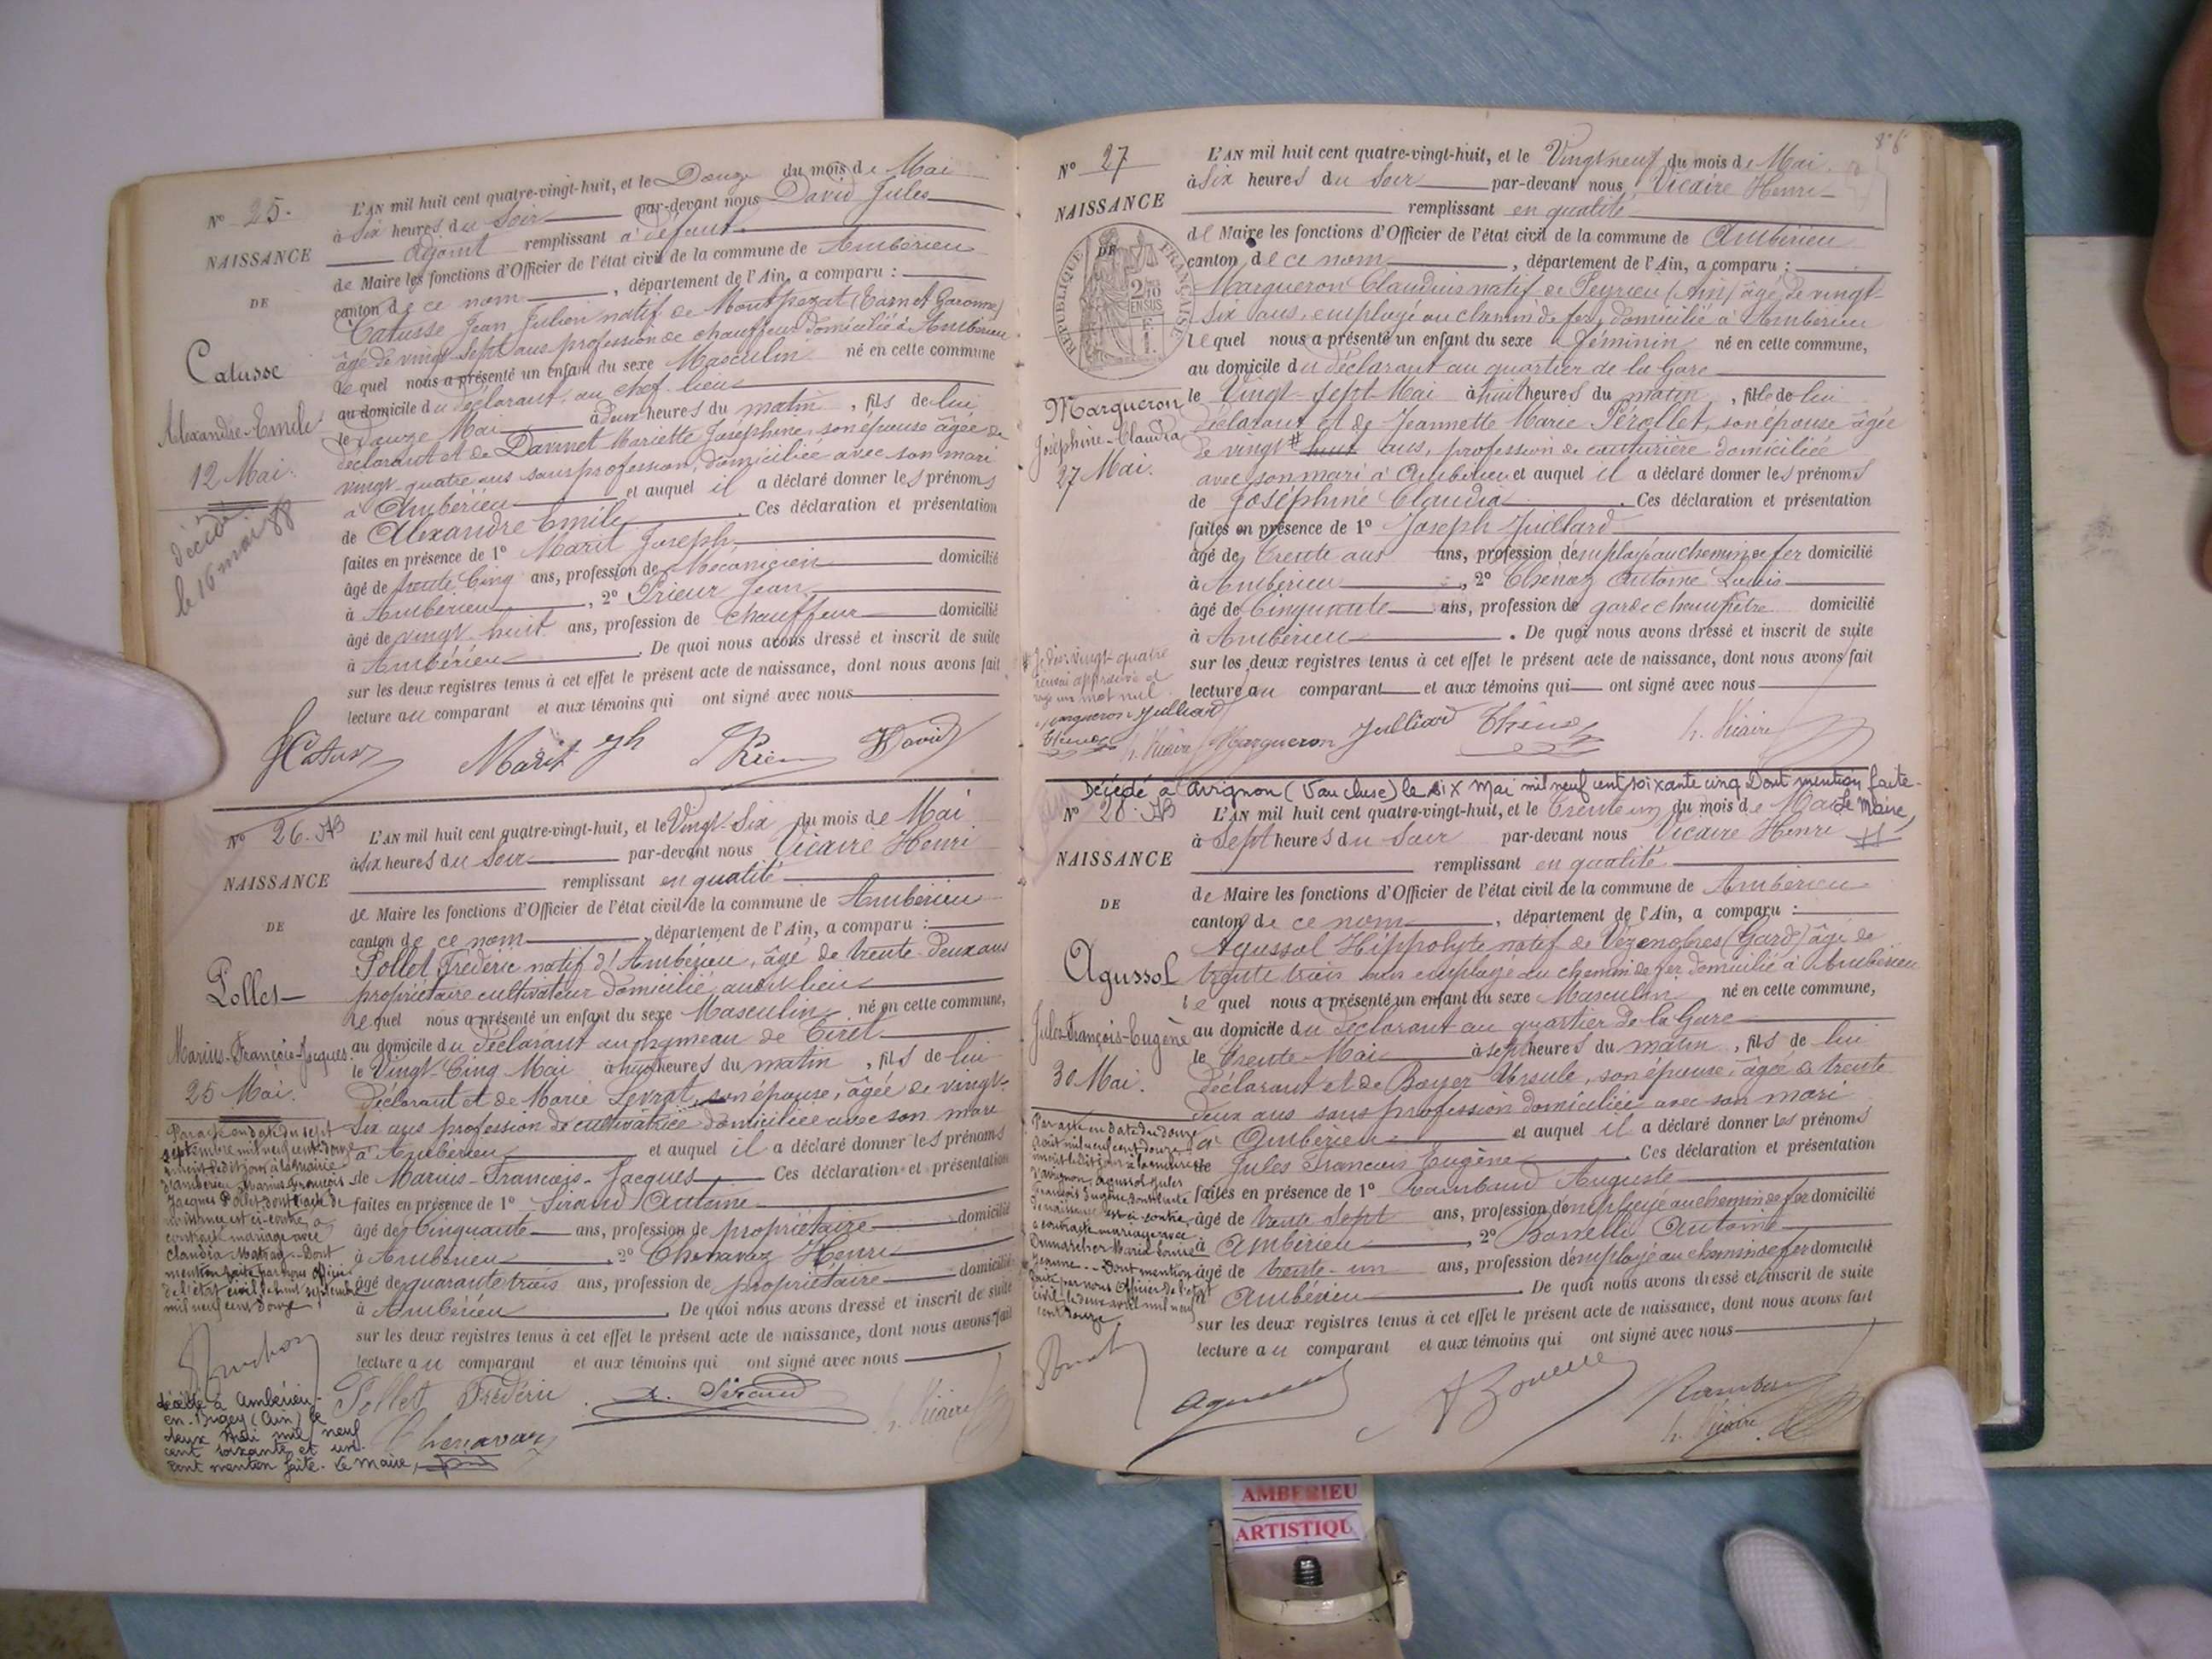 N° 25.
NAISSANCE
DE
Catusse
Alexandre-Emile
12 Mai.
décédé
le 16 mai 88
L'AN mil huit cent quatre-vingt-huit, et le Douze du mois de Mai
à Six heures du Soir par-devant nous David Jules
adjoint remplissant à défaut
de Maire les fonctions d'Officier de l'état civil de la commune de Ambérieu
canton de ce nom, département de l'Ain, a comparu :
Catusse Jean Julien natif de Montpezat (Tarn et Garonne)
âgé de vingt-sept ans profession de chauffeur domicilié à Ambérieu
lequel nous a présenté un enfant du sexe Masculin né en cette commune
au domicile du déclarant, au chef-lieu
le Douze Mai à deux heures du matin, fils de lui
déclarant et de Davinet Mariette Joséphine, son épouse âgée de
vingt-quatre ans sans profession, domiciliée avec son mari
à Ambérieu et auquel il a déclaré donner les prénoms
de Alexandre Emile. Ces déclaration et présentation
faites en présence de 1° Marit Joseph
âgé de trente Cinq ans, profession de Mécanicien domicilié
à Ambérieu, 2° Prieur Jean
âgé de vingt huit ans, profession de chauffeur domicilié
à Ambérieu. De quoi nous avons dressé et inscrit de suite
sur les deux registres tenus à cet effet le présent acte de naissance, dont nous avons fait
lecture au comparant et aux témoins qui ont signé avec nous
Marit Jh David
N° 26.
NAISSANCE
DE
Pollet
Marius-François-Jacques
25 Mai.
Par acte en date du sept
septembre mil neuf cent douze
d'Ambérieu, Marius François
Jacques Pollet dont l'acte de
naissance est ci-contre, a
contracté mariage avec
Claudia . Dont
mention faite par nous officier
de l'état civil le huit septembre
mil neuf cent douze.
décédé à Ambérieu-
en-Bugey (Ain) le
deux Mai mil neuf
cent soixante et un.
Dont mention faite. Le Maire,
L'AN mil huit cent quatre-vingt-huit, et le Vingt-Six du mois de Mai
à six heures du Soir par-devant nous Vicaire Henri
remplissant en qualité
de Maire les fonctions d'Officier de l'état civil de la commune de Ambérieu
canton de ce nom, département de l'Ain, a comparu :
Pollet Frédéric natif d'Ambérieu, âgé de trente-deux ans
propriétaire cultivateur domicilié audit lieu
lequel nous a présenté un enfant du sexe Masculin né en cette commune,
au domicile du déclarant au hameau de Tiret
le Vingt-Cinq Mai à huit heures du matin, fils de lui
déclarant et de Marie Levrat, son épouse, âgée de vingt-
six ans profession de cultivatrice domiciliée avec son mari
à Ambérieu et auquel il a déclaré donner les prénoms
de Marius-François-Jacques Ces déclaration et présentation
faites en présence de 1° Siraud Antoine
âgé de Cinquante ans, profession de propriétaire domicilié
à Ambérieu, 2° Chenavaz Henri
âgé de quarante trois ans, profession de propriétaire domicilié
à Ambérieu. De quoi nous avons dressé et inscrit de suite
sur les deux registres tenus à cet effet le présent acte de naissance, dont nous avons fait
lecture au comparant et aux témoins qui ont signé avec nous
Pollet Frédéric A. Siraud h. Vicaire
Chenavaz
86
N° 27
NAISSANCE
DE
RÉPUBLIQUE FRANÇAISE
2/10 EN SUS
Margueron
Joséphine-Claudia
27 Mai.
# Je dis vingt quatre
renvoi approuvé et
rayé un mot nul
Margueron Julliard
h. Vicaire
L'AN mil huit cent quatre-vingt-huit, et le Vingt neuf du mois de Mai
à Six heures du Soir par-devant nous Vicaire Henri
remplissant en qualité
de Maire les fonctions d'Officier de l'état civil de la commune de Ambérieu
canton de ce nom, département de l'Ain, a comparu :
Margueron Claudius natif de Peyrieu (Ain) âgé de vingt-
six ans, employé au chemin de fer, domicilié à Ambérieu
lequel nous a présenté un enfant du sexe féminin né en cette commune,
au domicile du déclarant au quartier de la Gare
le Vingt-sept Mai à huit heures du matin, fille de lui
déclarant et de Jeannette Marie Pérollet, son épouse âgée
de vingt # huit ans, profession de couturière domiciliée
avec son mari à Ambérieu et auquel il a déclaré donner les prénoms
de Joséphine Claudia. Ces déclaration et présentation
faites en présence de 1° Joseph Juilliard
âgé de trente ans ans, profession d'employé au chemin de fer domicilié
à Ambérieu, 2° Thénoz Antoine Louis
âgé de Cinquante ans, profession de garde champêtre domicilié
à Ambérieu. De quoi nous avons dressé et inscrit de suite
sur les deux registres tenus à cet effet le présent acte de naissance, dont nous avons fait
lecture au comparant et aux témoins qui ont signé avec nous
Margueron Julliard h. Vicaire
Décédé à Avignon (Vaucluse) le six Mai mil neuf cent soixante cinq Dont mention faite.
Le Maire,
N° 28.
NAISSANCE
DE
Agussol
Jules-François-Eugène
30 Mai.
Par acte en date du douze
Août mil neuf cent douze
d'Avignon Agussol Jules
François Eugène dont l'acte
de naissance est ci-contre,
a contracté mariage avec
Marie Louise
Jeanne. Dont mention
faite par nous Officier de l'état
civil
L'AN mil huit cent quatre-vingt-huit, et le Trente un du mois de Mai
à Sept heures du Soir par-devant nous Vicaire Henri
remplissant en qualité
de Maire les fonctions d'Officier de l'état civil de la commune de Ambérieu
canton de ce nom, département de l'Ain, a comparu :
Agussol Hippolyte natif de Vezenobres (Gard) âgé de
trente trois ans employé au chemin de fer domicilié à Ambérieu
lequel nous a présenté un enfant du sexe Masculin né en cette commune,
au domicile du déclarant au quartier de la Gare
le trente Mai à sept heures du matin, fils de lui
déclarant et de Boyer Ursule, son épouse, âgée de trente
deux ans sans profession domiciliée avec son mari
à Ambérieu et auquel il a déclaré donner les prénoms
de Jules François Eugène. Ces déclaration et présentation
faites en présence de 1° Rambaud Auguste
âgé de trente sept ans, profession d'employé au chemin de fer domicilié
à Ambérieu, 2° Antoine
âgé de trente-un ans, profession d'employé au chemin de fer domicilié
à Ambérieu. De quoi nous avons dressé et inscrit de suite
sur les deux registres tenus à cet effet le présent acte de naissance, dont nous avons fait
lecture au comparant et aux témoins qui ont signé avec nous
h. Vicaire
AMBERIEU
ARTISTIQU